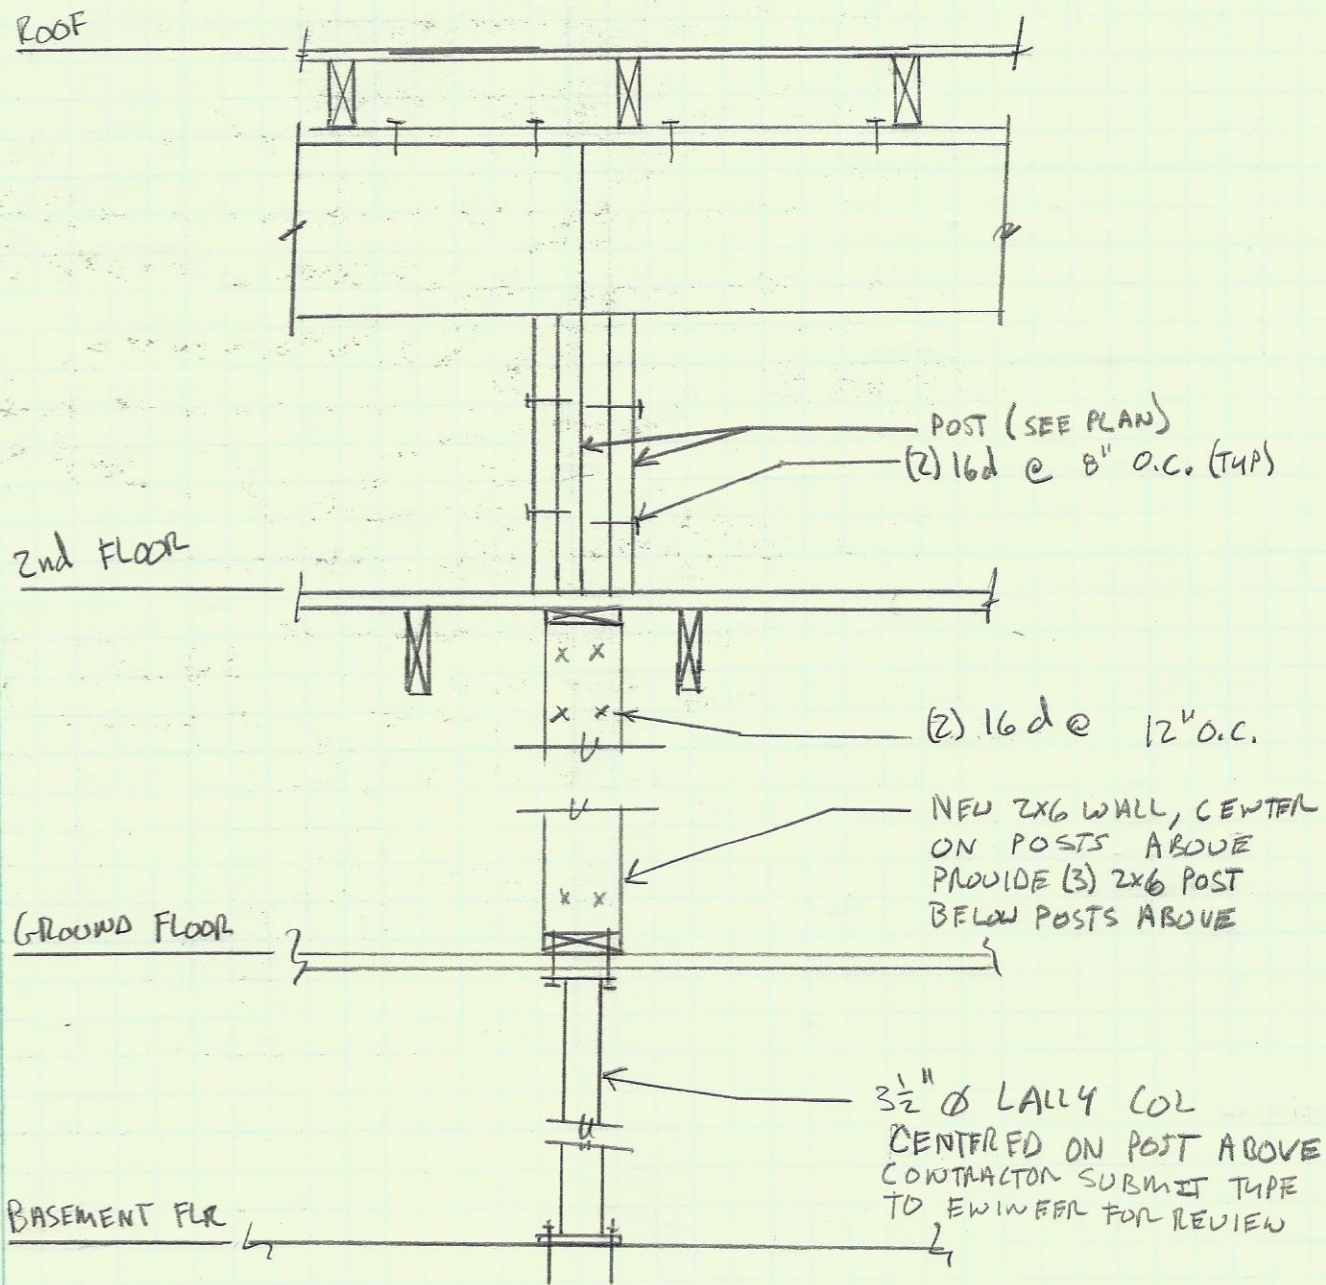 ROOF
POST (SEE PLAN)
(2) 16d @ 8" O.C. (TYP)
2nd FLOOR
(2) 16d @ 12" O.C.
NEW 2x6 WALL, CENTER
ON POSTS ABOVE
PROVIDE (3) 2x6 POST
BELOW POSTS ABOVE
GROUND FLOOR
3½" Ø LALLY COL
CENTERED ON POST ABOVE
CONTRACTOR SUBMIT TYPE
TO EWINEER FOR REVIEW
BASEMENT FLR